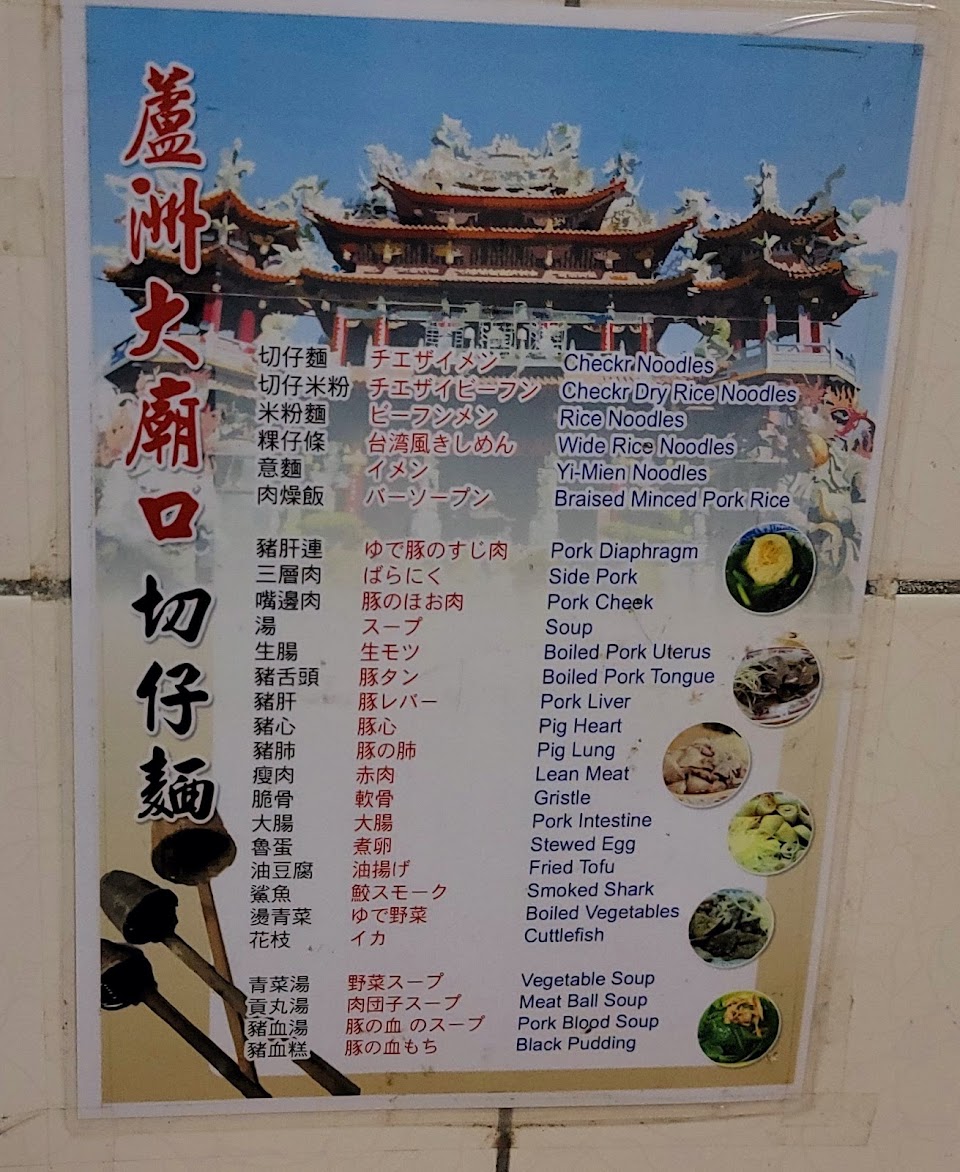 蘆洲大廟口 切仔麵
切仔麵 チエザイメン Checkr Noodles
切仔米粉 チエザイビーフン Checkr Dry Rice Noodles
米粉麵 ビーフンメン Rice Noodles
粿仔條 台湾風きしめん Wide Rice Noodles
意麵 イメン Yi-Mien Noodles
肉燥飯 バーソープン Braised Minced Pork Rice
豬肝連 ゆで豚のすじ肉 Pork Diaphragm
三層肉 ばらにく Side Pork
嘴邊肉 豚のほお肉 Pork Cheek
湯 スープ Soup
生腸 生モツ Boiled Pork Uterus
豬舌頭 豚タン Boiled Pork Tongue
豬肝 豚レバー Pork Liver
豬心 豚心 Pig Heart
豬肺 豚の肺 Pig Lung
瘦肉 赤肉 Lean Meat
脆骨 軟骨 Gristle
大腸 大腸 Pork Intestine
魯蛋 煮卵 Stewed Egg
油豆腐 油揚げ Fried Tofu
鯊魚 鮫スモーク Smoked Shark
燙青菜 ゆで野菜 Boiled Vegetables
花枝 イカ Cuttlefish
青菜湯 野菜スープ Vegetable Soup
貢丸湯 肉団子スープ Meat Ball Soup
豬血湯 豚の血 のスープ Pork Blood Soup
豬血糕 豚の血もち Black Pudding